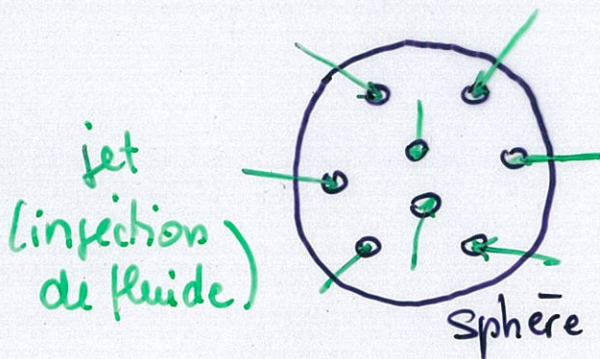 jet
(injection
de fluide)
sphère